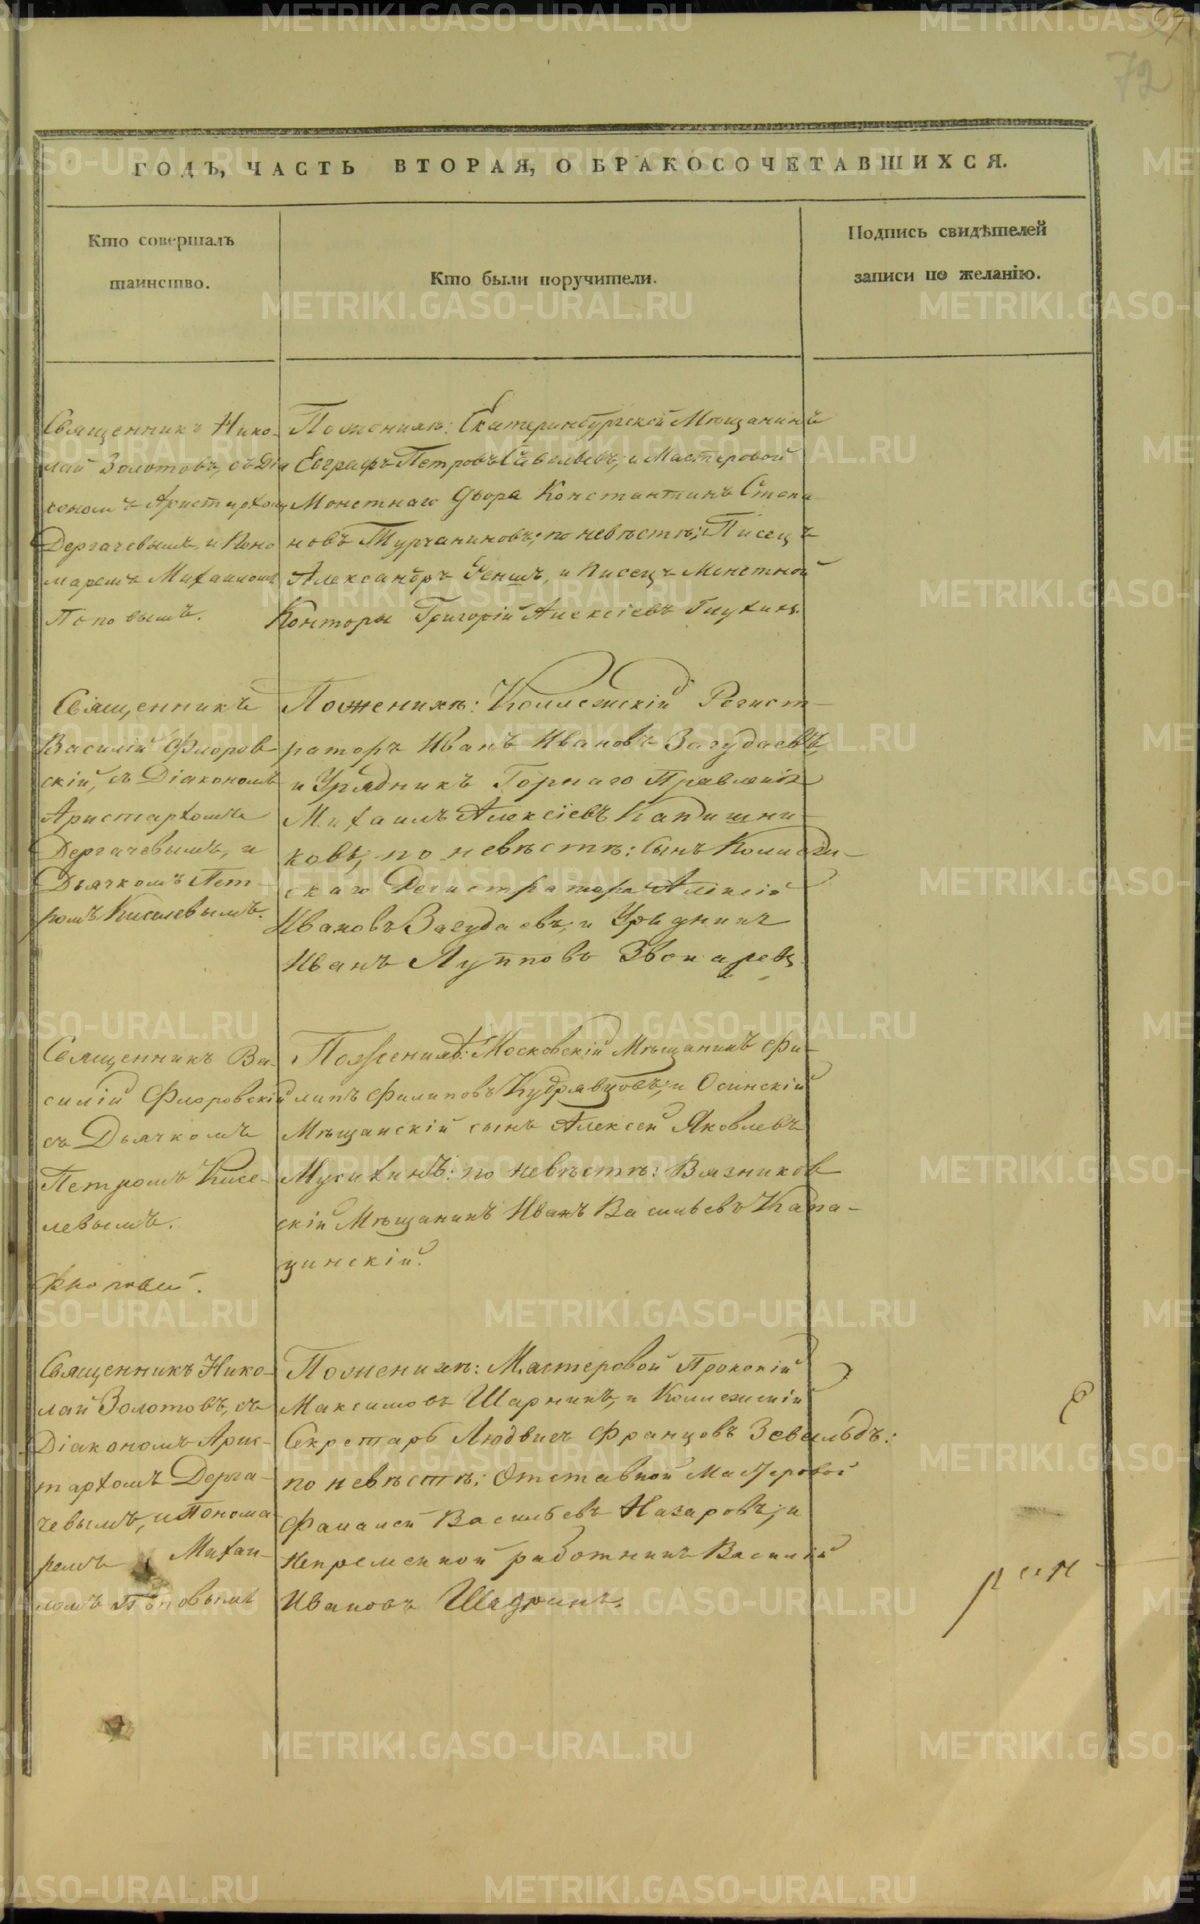 72
ГОДЪ, ЧАСТЬ ВТОРАЯ, О БРАКОСОЧЕТАВШИХСЯ.
Кто совершалъ
таинство.
Кто были поручители.
Подпись свидѣтелей
записи по желанію.
Священникъ Нико-
лай Золотовъ, съ Діа
кономъ Аристархомъ
Дергачевымъ, и Поно
маремъ Михаиломъ
Поповымъ.
По женихѣ: Екатеринбургской Мѣщанинъ
Евграфъ Петровъ Савельевъ, и Мастеровой
Монетнаго Двора Константинъ Степа
новъ Турчаниновъ; по невѣстѣ: Писецъ
Александръ и Писецъ Монетной
Конторы Григорій Алексіевъ Глухихъ
Священникъ
Василій Флоров-
скій, съ Діакономъ
Аристархомъ
Дергачевымъ, и
Дьячкомъ Пет-
ромъ Киселевымъ.
По женихѣ: Коллежскій Регист-
раторъ Иванъ Ивановъ Загудаевъ,
и Урядникъ Горнаго Правленія
Михаилъ Алексіевъ Капишни-
ковъ, по невѣстѣ: сынъ Коллеж-
скаго Регистратора Алексій
Ивановъ Загудаевъ, и Урядникъ
Иванъ Лупповъ Звонаревъ
Священникъ Ва-
силій Флоровскій
съ Дьячкомъ
Петромъ Кисе-
левымъ.
По женихѣ: Московскій Мѣщанинъ Фи-
липъ Филиповъ Кудрявцовъ, и Осинскій
Мѣщанскій сынъ Алексей Яковлевъ
Мусихинъ: по невѣстѣ: Вязников
скій Мѣщанинъ Иванъ Васильевъ Капа-
цинскій.
Священникъ Нико-
лай Золотовъ, съ
Діакономъ Арис-
тархомъ Дерга-
чевымъ, и Понома
ремъ Михаи-
ломъ Поповымъ
По женихѣ: Мастеровой Прокопій
Максимовъ Шарнинъ, и Коллежскій
Секретарь Людвигъ Францовъ Зевальдъ:
по невѣстѣ: Отставной Мастеровой
Фаналей Васильевъ Назаровъ, и
Непременной работникъ Василій
Ивановъ Шадринъ.
METRIKI.GASO-URAL.RU